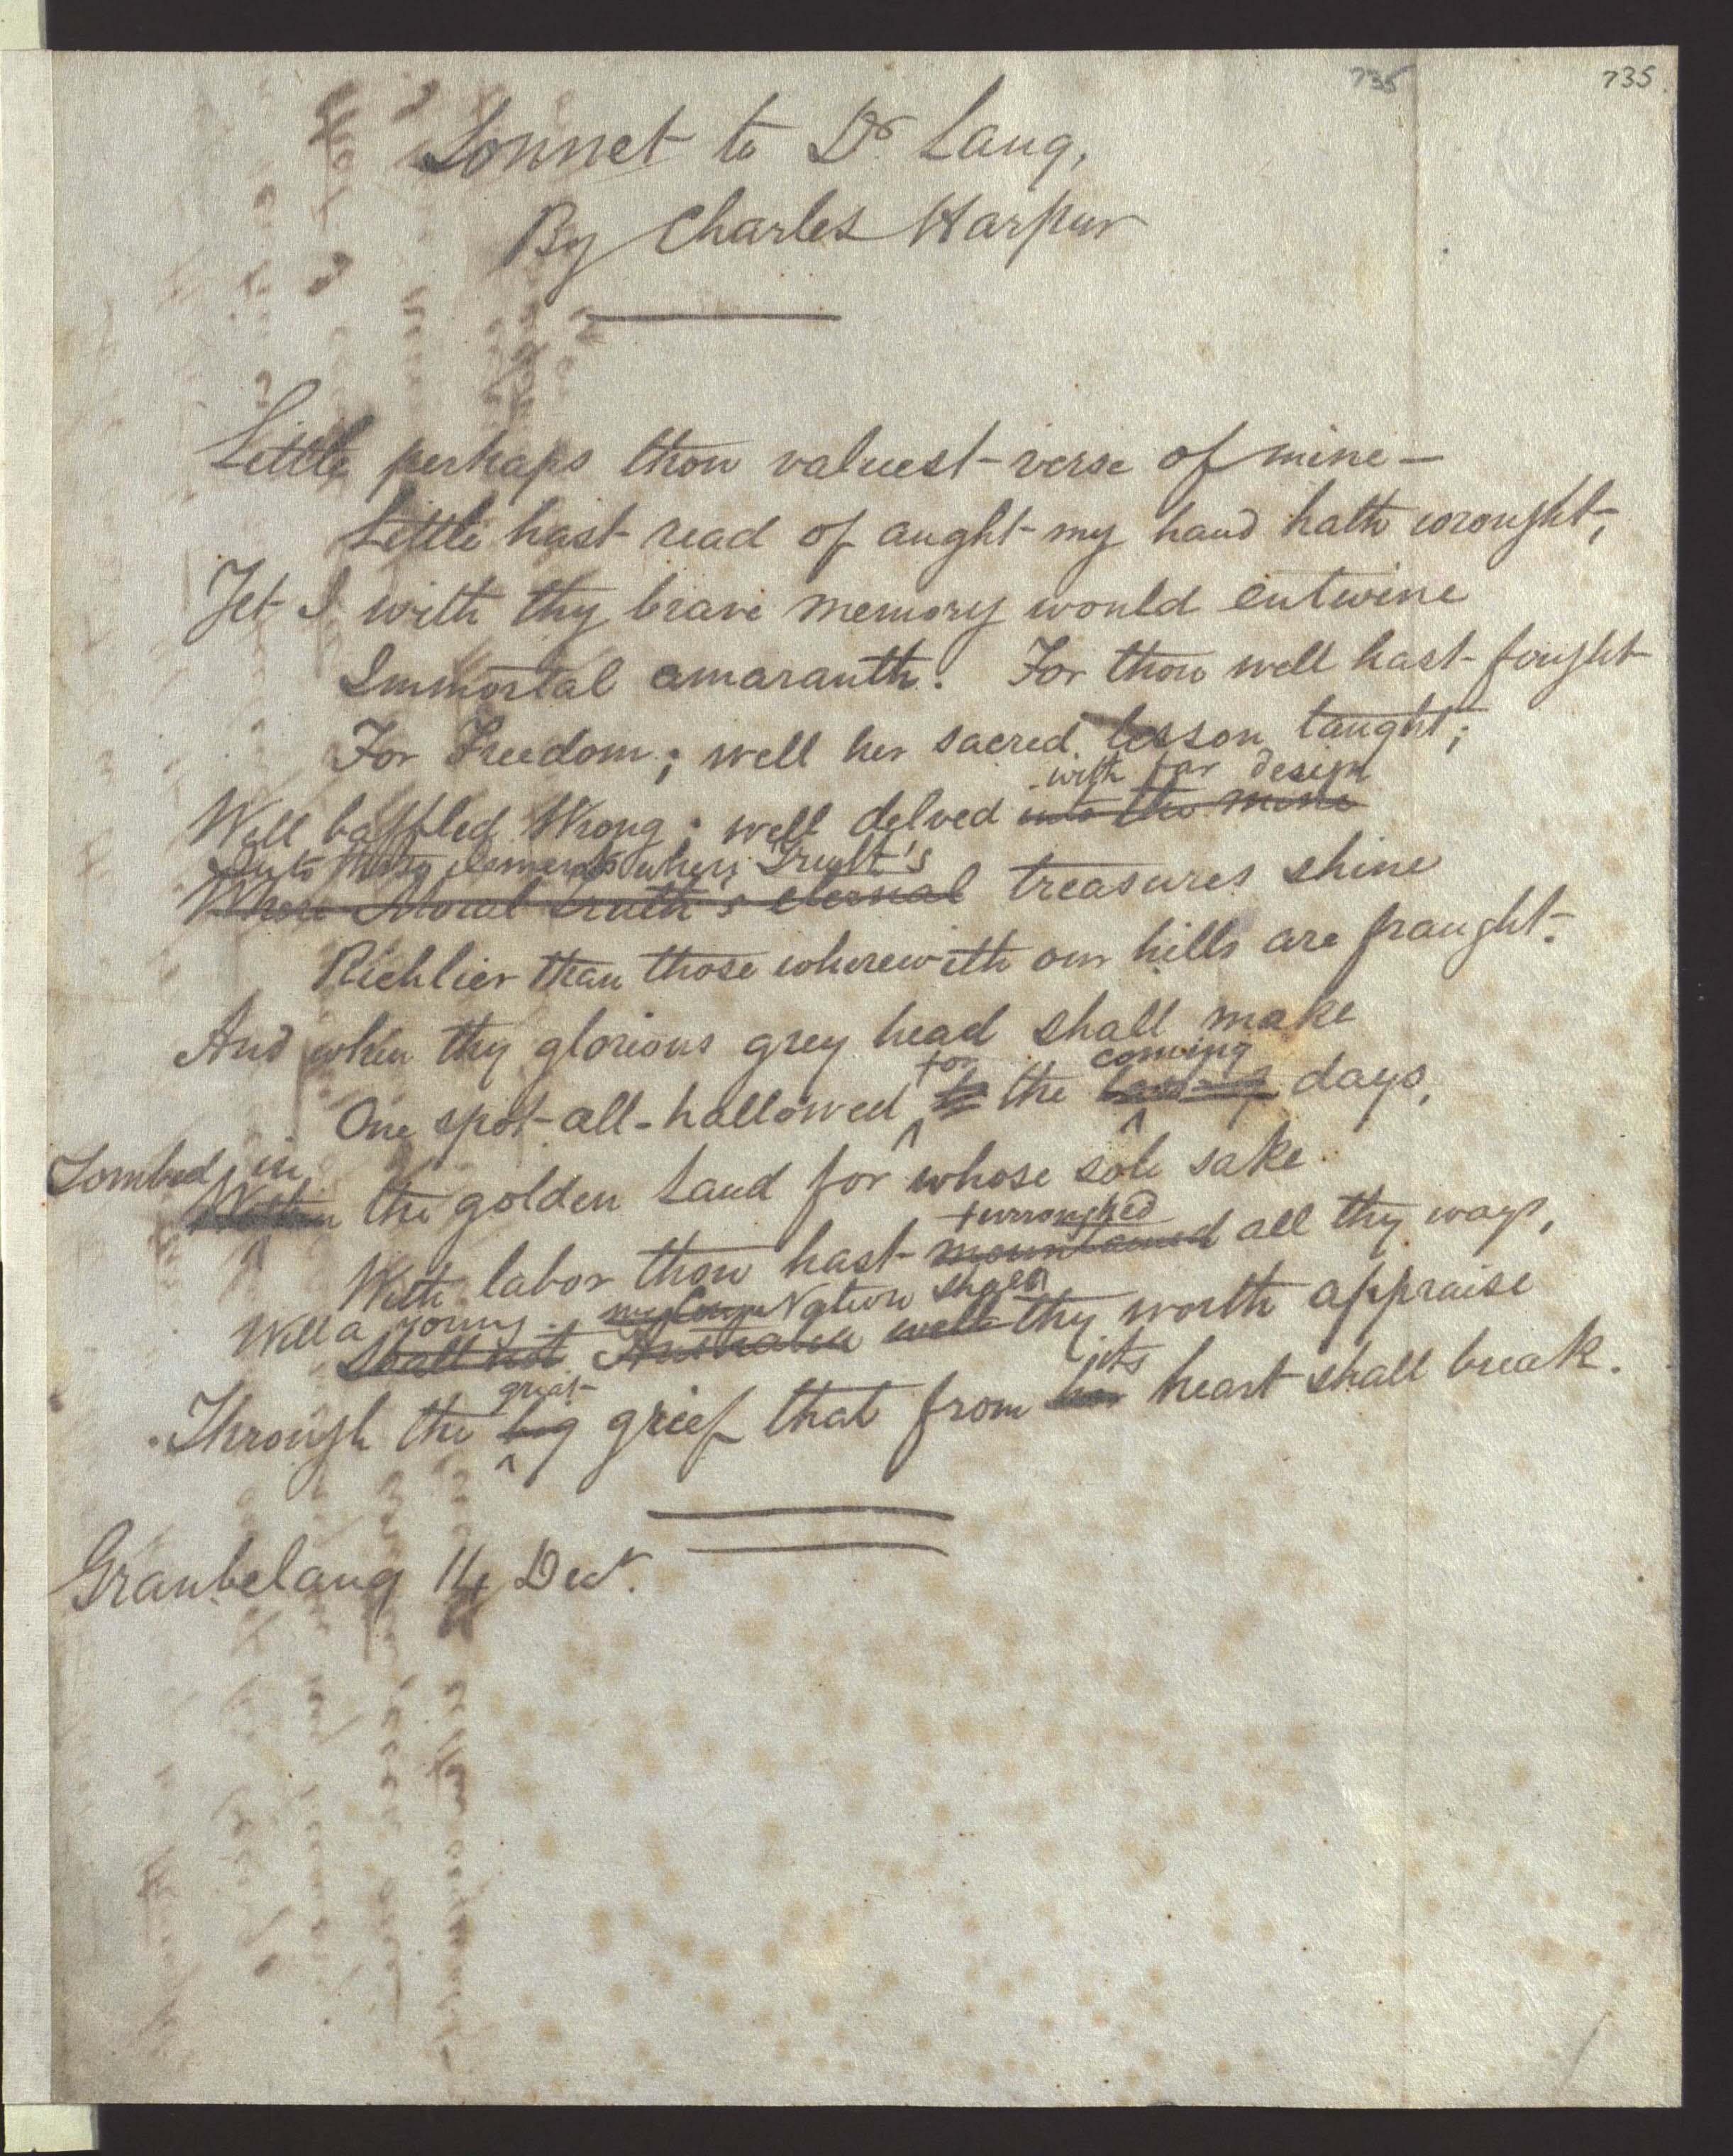 735 735
Sonnet to Dr. Lang,
By Charles Harpur
Little perhaps thou valuest verse of mine —
Little hast read of aught my hand hath wrought;
Yet I with thy brave memory would entwine
Immortal amaranth. For thou well hast fought
For Freedom; well her sacred lesson taught;
with far design
Well baffled Wrong; well delved into the mine
Into those elements where Truth's
Where Moral Truth's eternal treasures shine
Richlier than those wherewith our hills are fraught.
And when thy glorious grey head shall make
for coming
One spot all-hallowed to the days,
Tombed in
Within the golden land for whose sole sake
furroughed
With labor thou hast mountained all thy ways,
Will a young Nation shall
Shall not Australia well thy worth appraise
great its
Through the big grief that from her heart shall break.
Granbelang 14 Decr.